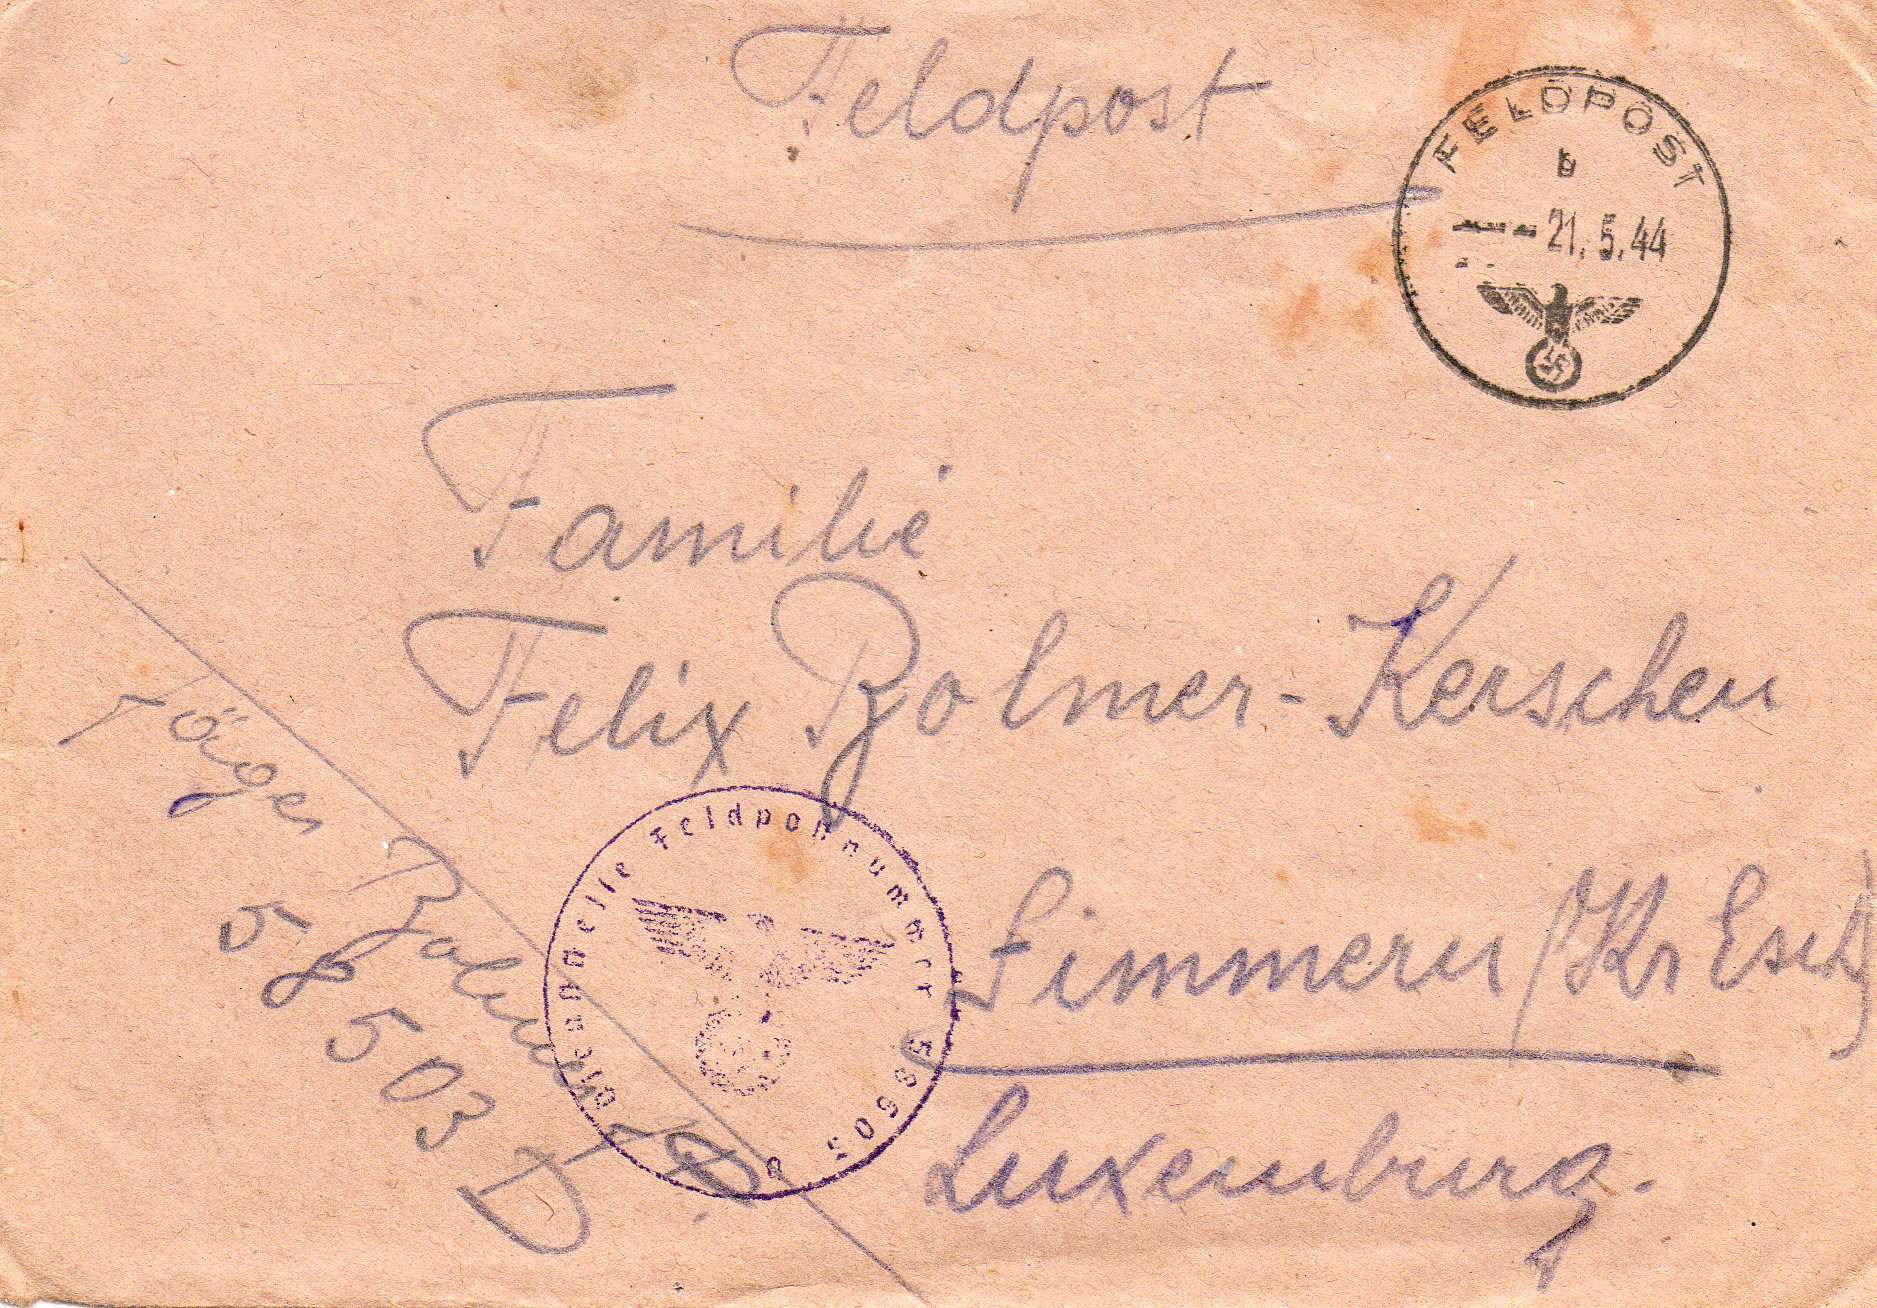 Feldpost
FELDPOST
b
21.5.44
Familie
Felix Bolmer-Kerschen
Zimmern (Kr Esch)
Luxemburg.
Jäger Bolmer
58503 D
Dienststelle Feldpostnummer